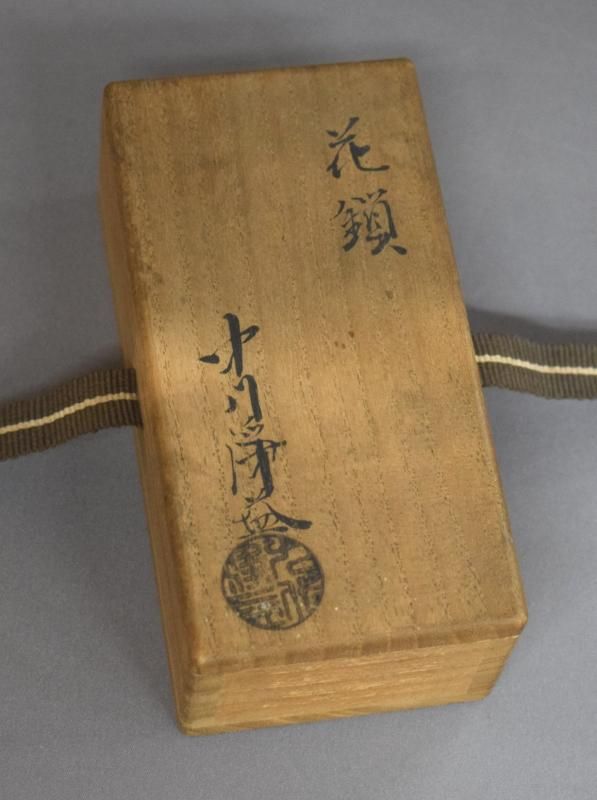 花鎖
中川浄益